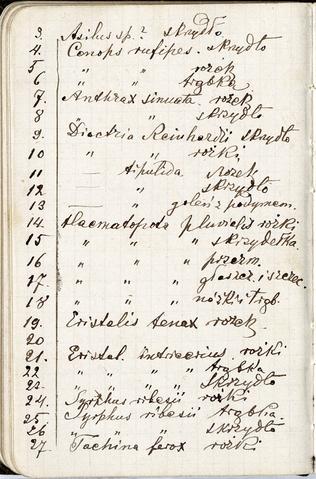 3. Asilus sp.? skrzydło
4. Conops rufipes. skrzydło
5 " " rożek
6 " " trąbka
7. Anthrax sinuata rożek
8 " " skrzydło
9. Dioctria Reinhardii skrzydło
10 " " rożki
11 — tipulida rożek
12 — " skrzydło
13 — " goleń z
14. Haematopota pluvialis rożki
15 " " " skrzydełka
16 " " "
17. " " " głaszcz. i szczec.
18 " " " nóżki i trąb.
19. Eristalis tenax rożek
20
21. Eristal. intricarius rożki
22 " " " trąbka
23. " " " skrzydło
24. Syrphus ribesii rożki
25 Syrphus ribesii trąbka
26 " " skrzydło
27 Tachina ferox rożki